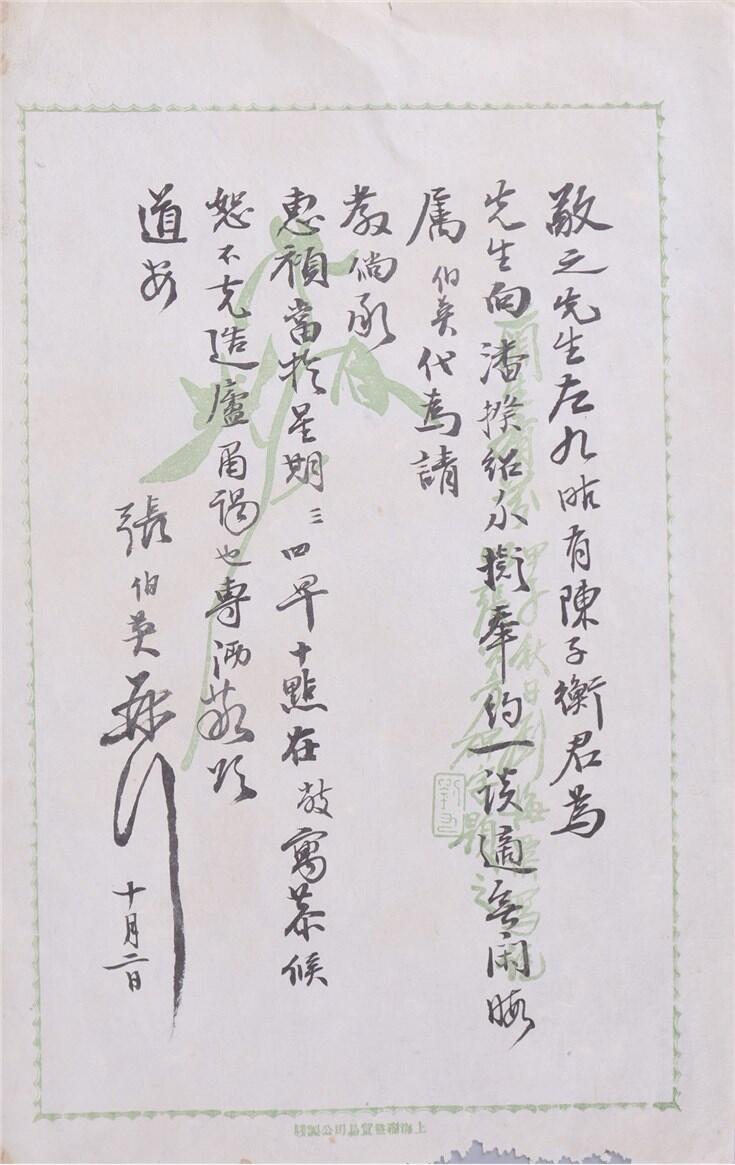 敬之先生左右昨有陳子衡君為
先生向潘揆紹介擬奉約一談適無閑暇
屬伯英代為請
教倘承
惠顧當於星期三四早十點在敝寓恭候
恕不克造廬謁也專泐敬頌
道安
張伯英頓首 十月二日
甲子秋日劉海粟寫